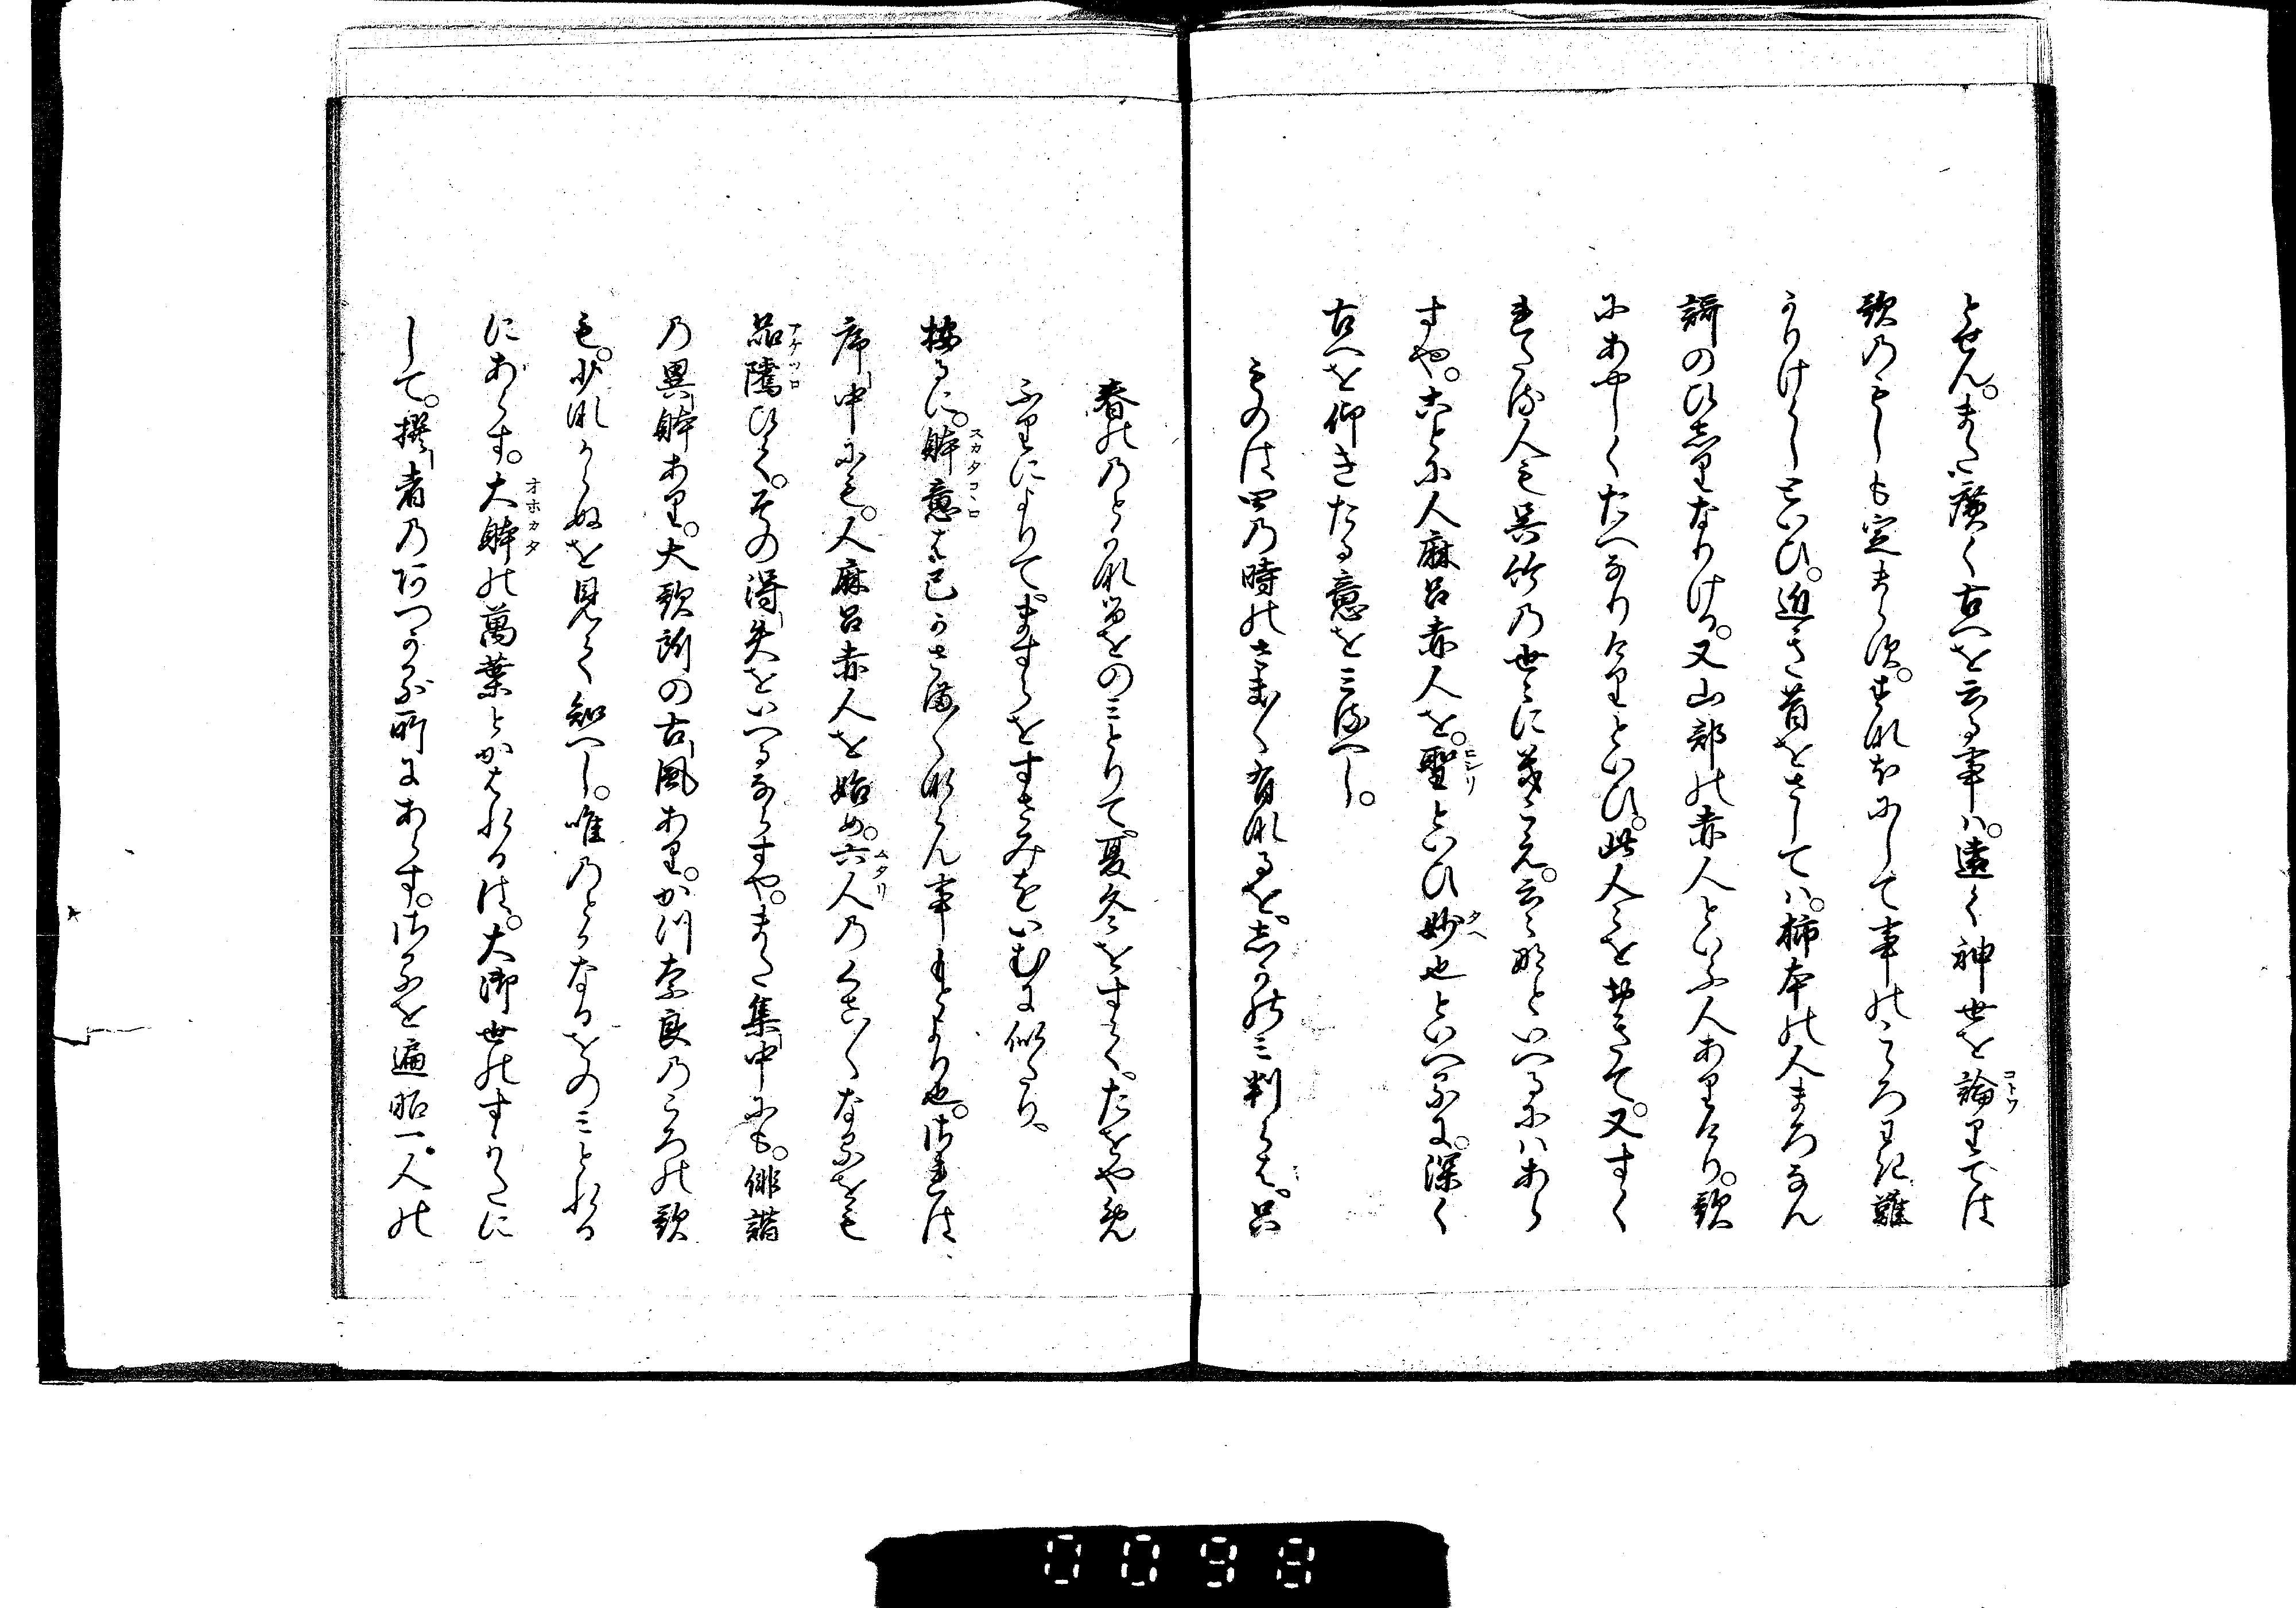 とせん。また廣く古へを云る事ハ。遠く神世を論りては
コトワ
歌のもしも定まらす。すなほにして事のこゝろわき難
かりけらしといひ。近き昔をさしてハ。柿本の人まろなん
謌のひしりなりける。又山部の赤人といふ人ありけり。歌
にあやしくたへなりけりといひ。此人々をおきて。又すく
れたる人も呉竹の世々に聞こえ。云々なといへるにハあら
すや。ことに人麻呂赤人を。聖といひ妙也といへるは。深く
ヒシリ
タヘ
古へを仰きたる意をみるへし。
ものは四の時のさま〱有なるを。しかのみ判らは。只
春ののとかなるをのみとりて。夏冬をすて。たをやめ
ふりによりて。ますらをすさみをいむに似たり。
按るに。躰意はおのかさま〱ならん事もとより也。されは
スカタコヽロ
序中にも。人麻呂赤人を始め。六人のくさ〱なるをも
ムタリ
品隲ひて。その得失をいへるならすや。また集中にも。俳諧
ナケツロ
の異躰あり。大歌所の古風あり。かつ奈良のころの歌
も。少なからぬを見て知へし。唯のとかなるをのみとれる
にあらす。大躰の萬葉とかはれるは。大御世のすかたに
オホカタ
して。撰者のあつかる所にあらす。さるを遍昭一人の
0098